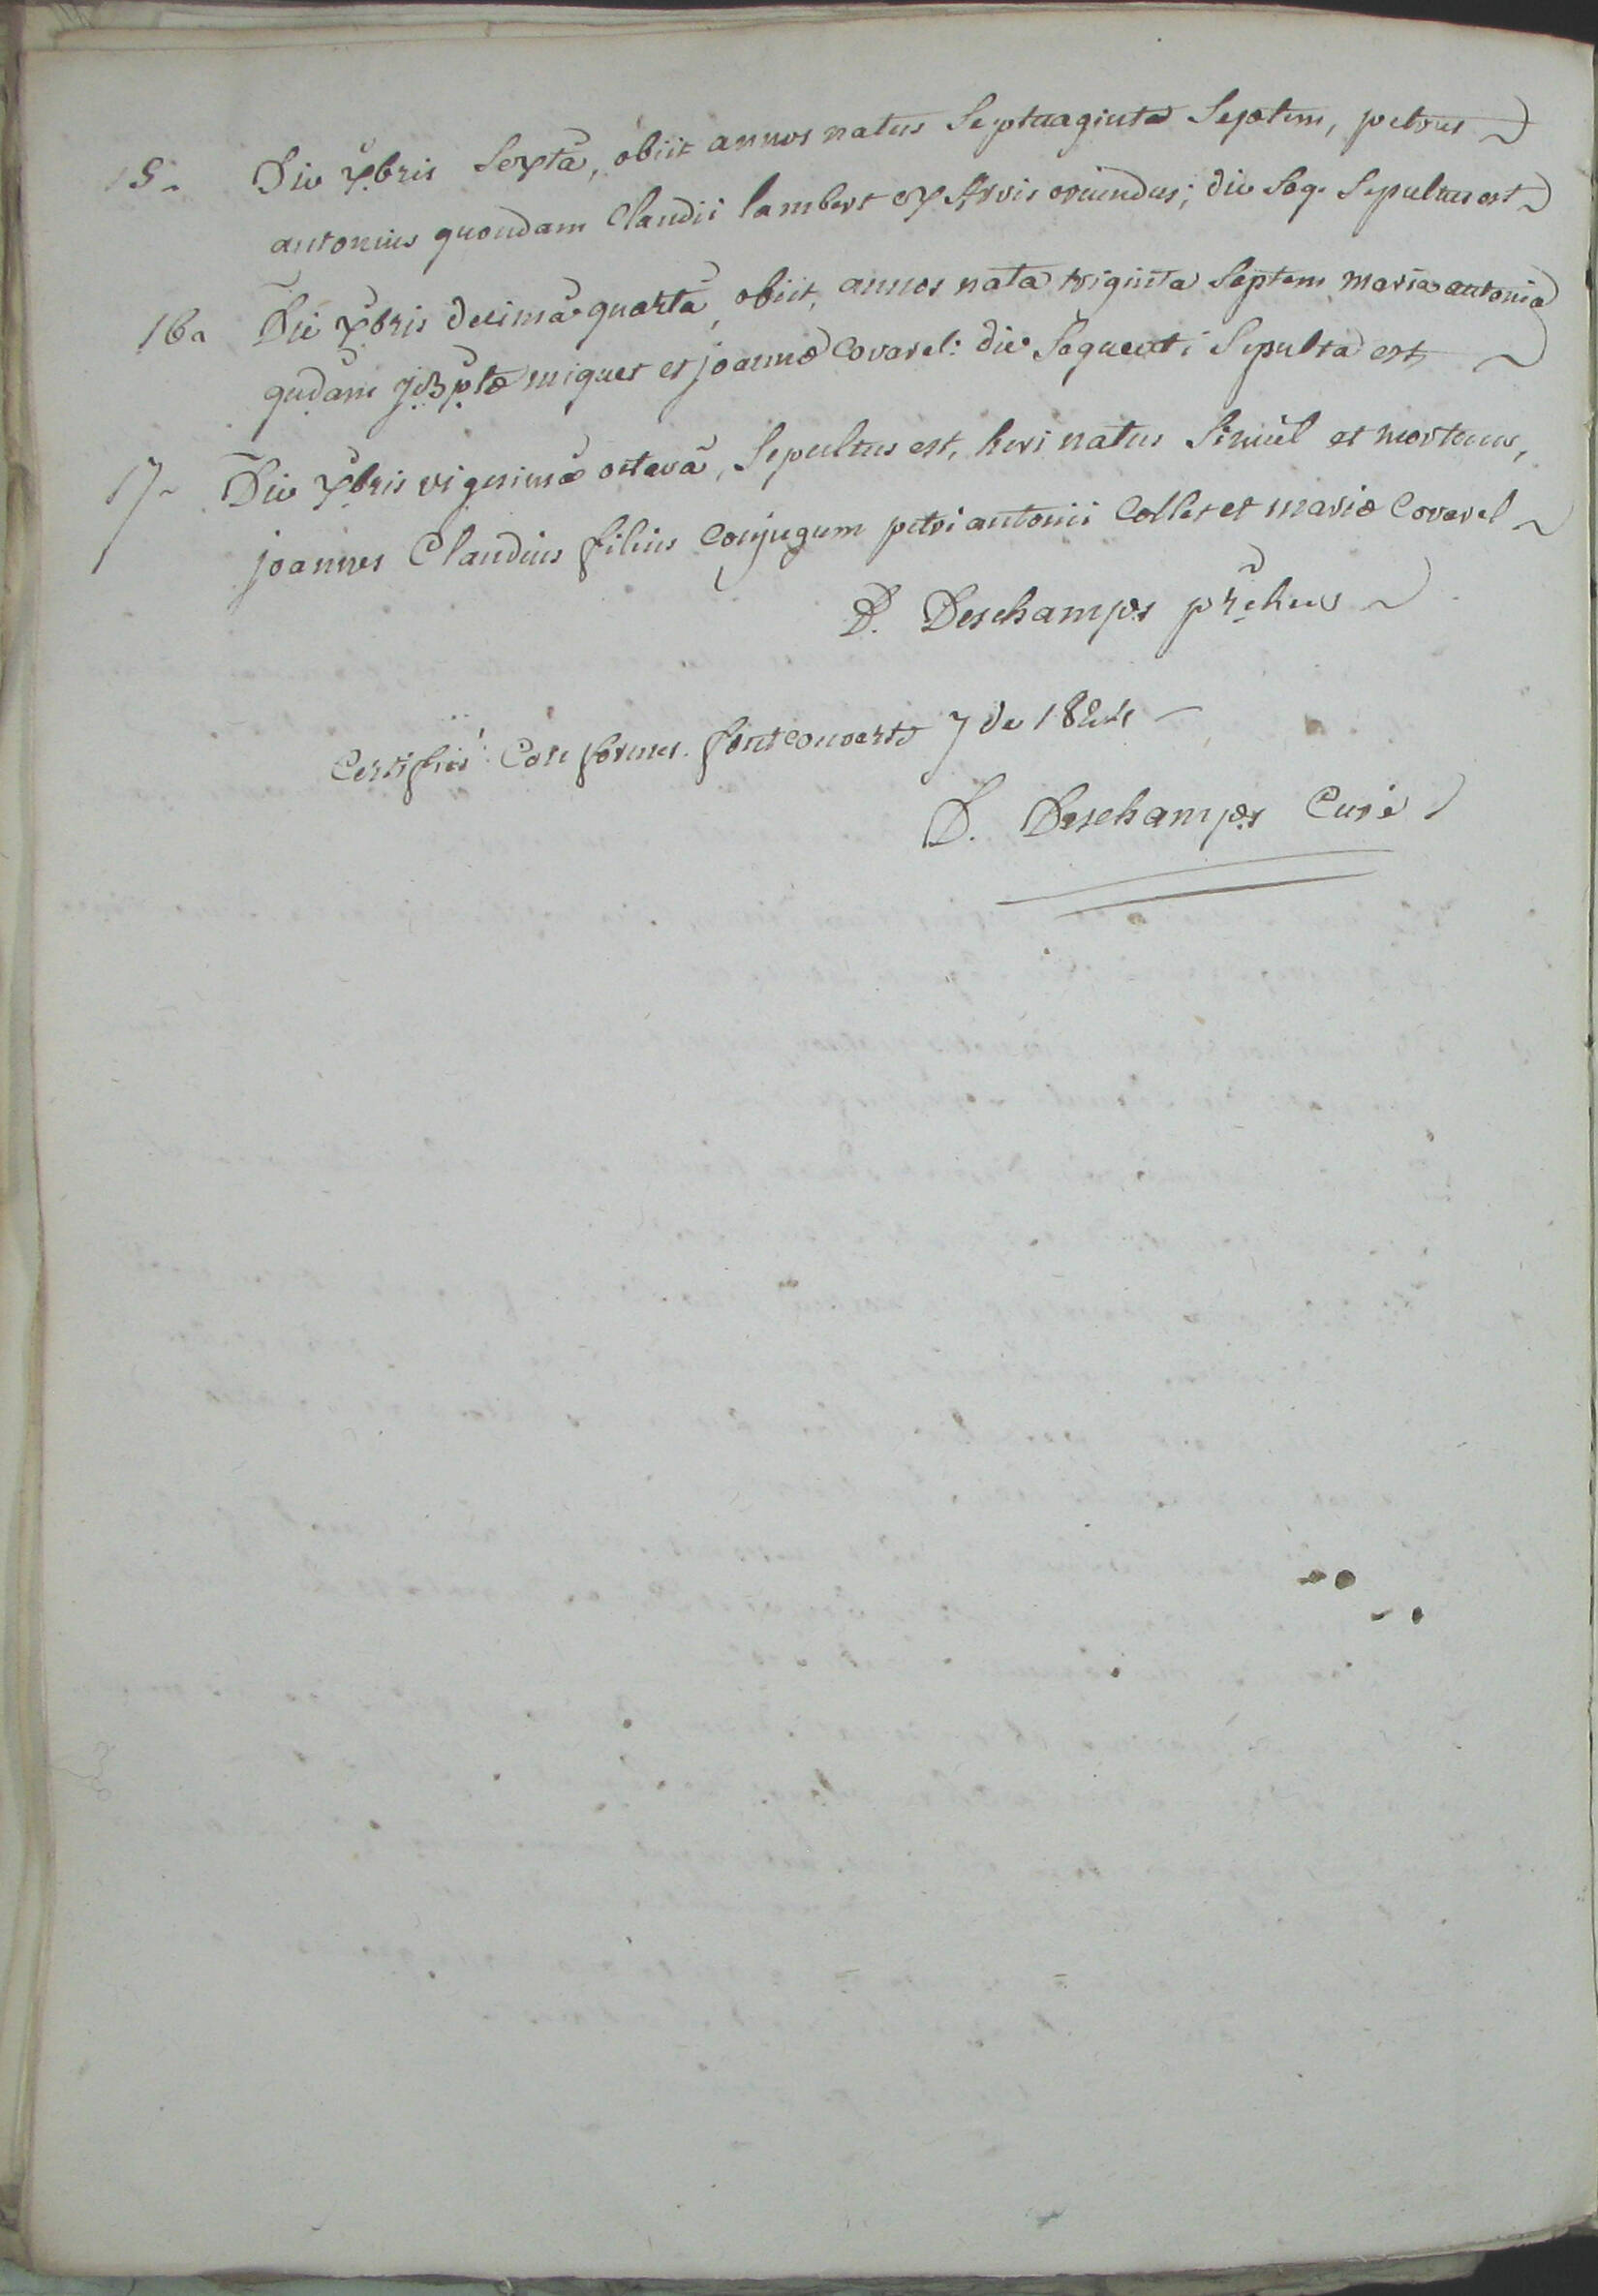 15. Die Xbris Sextâ, obiit annos natus Septuaginta Septem, petrus
antonius quondam Claudii lambert ex Arvis oriundus; die Seq. Sepultus est
16a Die Xbris decimâ quartâ, obiit, annos nata triginta Septem maria antonia
qudam joBptæ miquet et joannæ Covarel: die Sequenti Sepulta est,
17 Die Xbris vigesimâ octavâ, Sepultus est, heri natus Simul et mortuus,
joannes Claudius filius Conjugum petri antonii Collet et mariæ Covarel
D. Deschamps prchus
Certifiés Conformes. fontcouverte 7 de 1824
D. Deschamps Curé